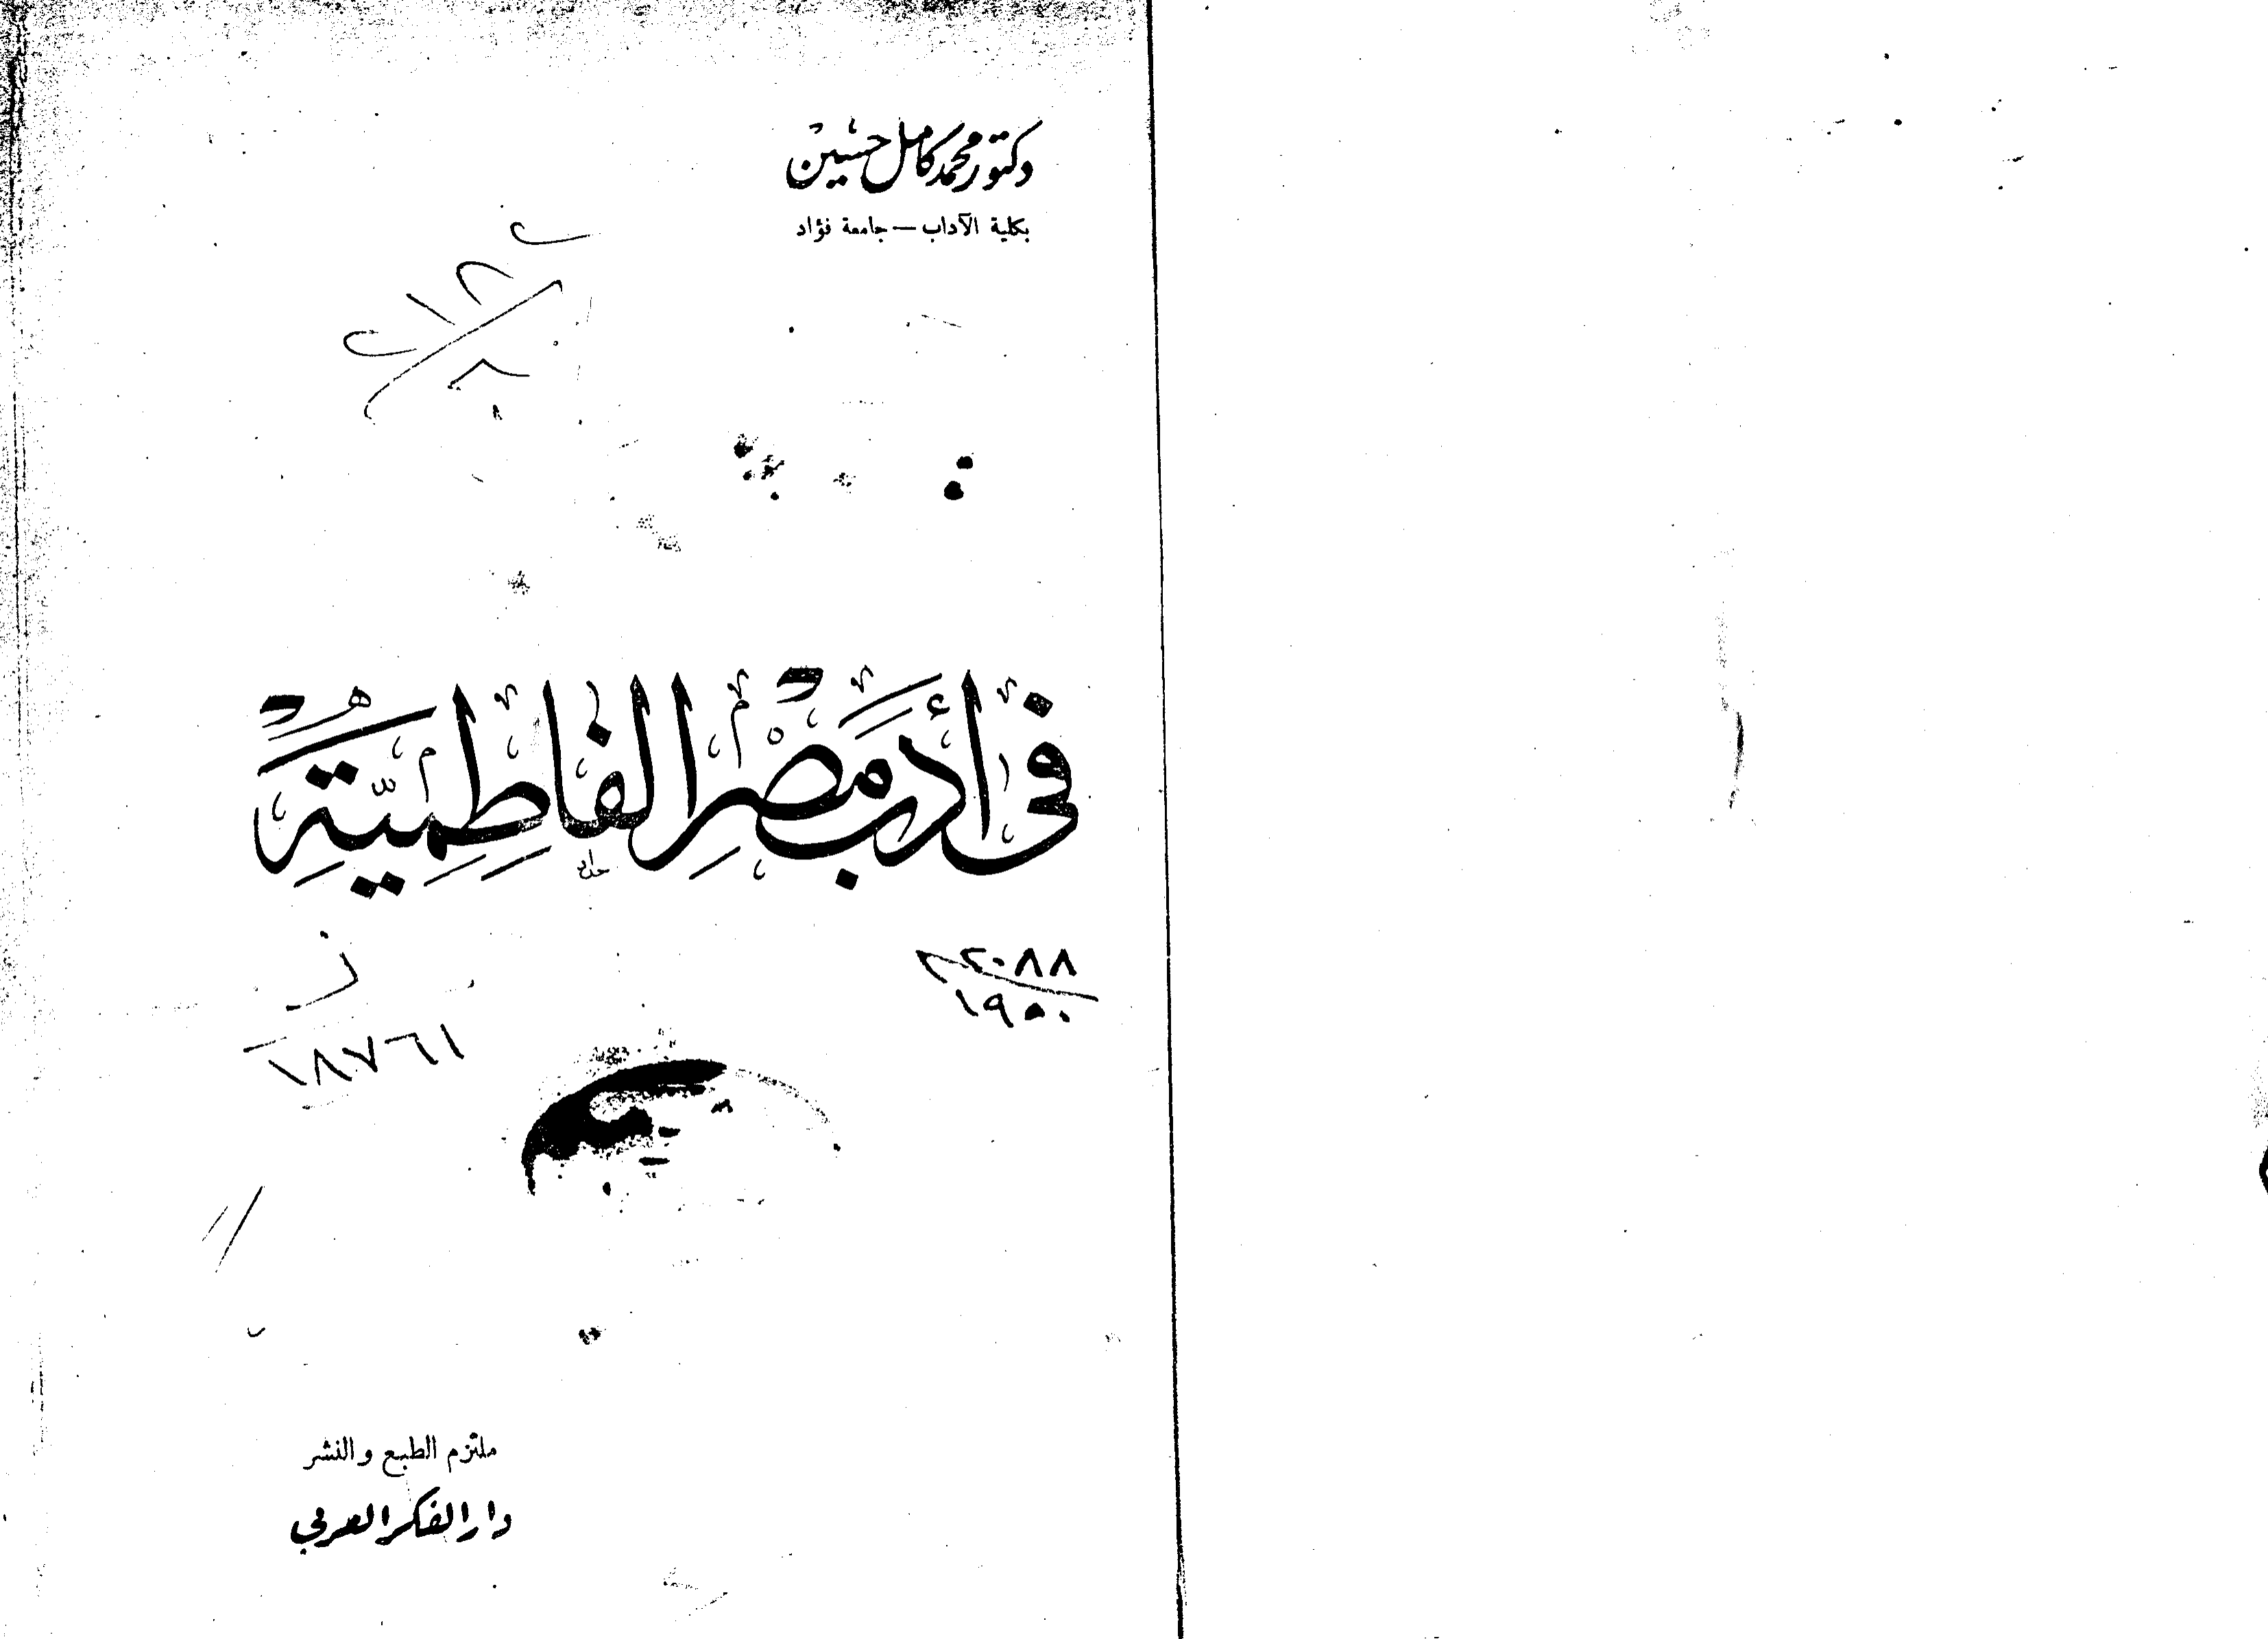 دكتور محمد كامل حسين
بكلية الآداب — جامعة فؤاد
فِى أَدَبِ مِصْرِ الفَاطِمِيَّةِ
٢٠٨٨
١٩٥٠
١٨٧٦١
ملتزم الطبع والنشر
دار الفكر العربي